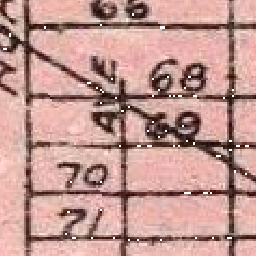 66
AVE
68
69
70
71